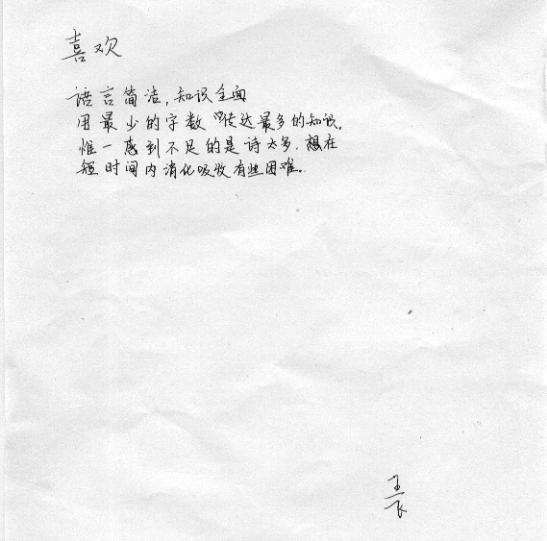 喜欢
语言简洁,知识全面
用最少的字数传达最多的知识。
惟一感到不足的是诗太多.想在
短时间内消化吸收有些困难。
王飞